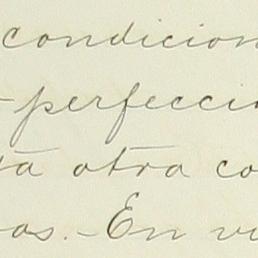 condicion
-perfecci
ta otra co
os.-En v